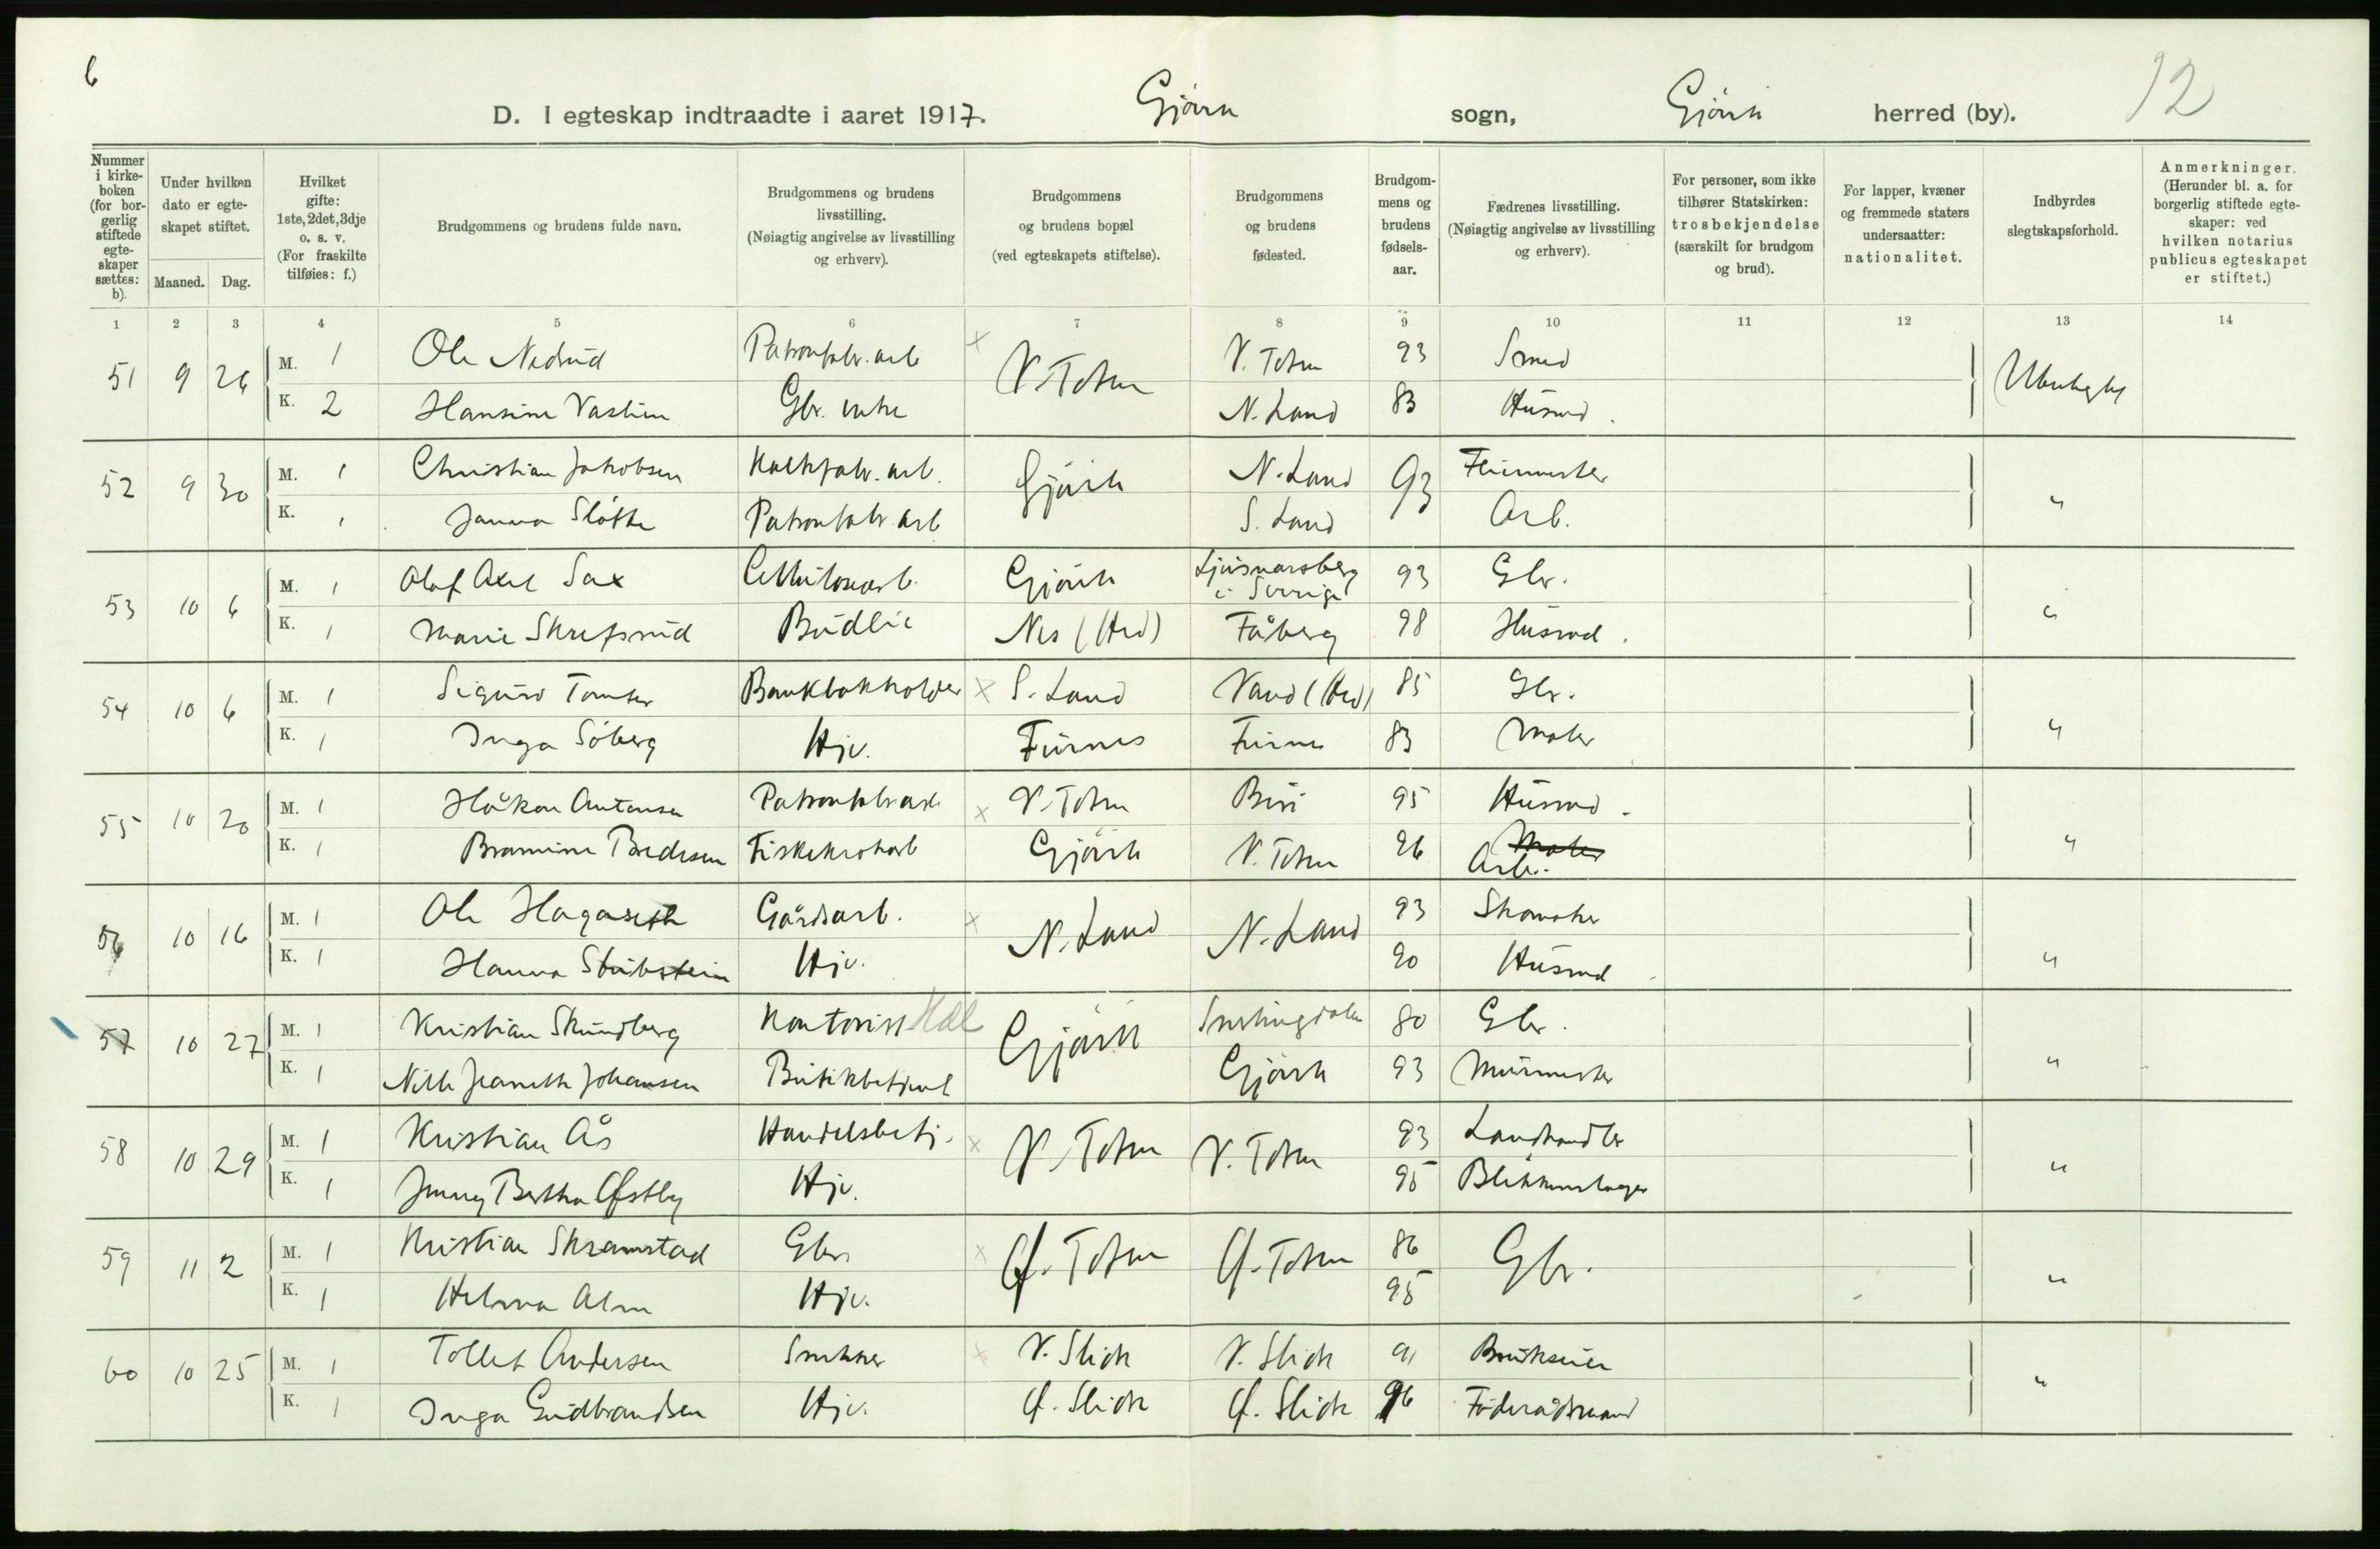 6
12
D. I egteskap indtraadte i aaret 1917. Gjövik sogn, Gjövik herred (by).
Nummer i kirke-boken (for bor-gerlig stiftede egte-skaper sættes: b).
Under hvilken dato er egte-skapet stiftet.
Maaned. Dag.
Hvilket gifte: 1ste, 2det, 3dje o. s. v. (For fraskilte tilføies: f.)
Brudgommens og brudens fulde navn.
Brudgommens og brudens livsstilling. (Nøiagtig angivelse av livsstilling og erhverv).
Brudgommens og brudens bopæl (ved egteskapets stiftelse).
Brudgommens og brudens fødested.
Brudgom-mens og brudens fødsels-aar.
Fædrenes livsstilling. (Nøiagtig angivelse av livsstilling og erhverv).
For personer, som ikke tilhører Statskirken: trosbekjendelse (særskilt for brudgom og brud).
For lapper, kvæner og fremmede staters undersaatter: nationalitet.
Indbyrdes slegtskapsforhold.
Anmerkninger. (Herunder bl. a. for borgerlig stiftede egte-skaper: ved hvilken notarius publicus egteskapet er stiftet.)
1 2 3 4 5 6 7 8 9 10 11 12 13 14
51 9 26 M. 1 Ole Nedrud Patronfabr. arb x V. Toten V. Toten 93 Smed Ubeslegtet
K. 2 Hansine Gbr. enke N. Land 83 Husmd.
52 9 30 M. 1 Christian Jakobsen Kalkfabr. arb. Gjövik N. Land 93 "
K. 1 Janna Slötte Patronfabr. arb S. Land Arb.
53 10 6 M. 1 Olaf Axel Sax Cellulosearb. Gjövik Ljusnarsberg i Sverige 93 Gbr. "
K. 1 Marie Skrefsrud Budeie Nes (Hed) Fåberg 98 Husmd.
54 10 6 M. 1 Sigurd Tomter Bankbokholder x S. Land Vang (Hed) 85 Gbr. "
K. 1 Inga Söberg Hjv. Furnes Furnes 83 Maler
55 10 20 M. 1 Håkon Antonsen Patronfabr arb x V. Toten Biri 95 Husmd. "
K. 1 Bredesen Fiskekrokarb Gjövik V. Toten 96 Maler Arb.
56 10 16 M. 1 Ole Hagaseth Gårdsarb. x N. Land N. Land 93 Skomaker "
K. 1 Hanna Stubstein Hjv. 90 Husmd
57 10 27 M. 1 Kristian Skundberg Kontorist Gjövik Snertingdalen 80 Gbr. "
K. 1 Nille Jeanette Johansen Butikbetjent Gjövik 93 Murmester
58 10 29 M. 1 Kristian Ås Handelsbetj. x V. Toten V. Toten 93 Landhandler "
K. 1 Jenny Bertha Østby Hjv. 95 Blikkenslager
59 11 2 M. 1 Kristian Skramstad Gbr. x Ø. Toten Ø. Toten 86 Gbr. "
K. 1 Helma Alm Hjv. 95
60 10 25 M. 1 Tollef Andersen Snekker x V. Slidre V. Slidre 91 Brukseier "
K. 1 Inga Gudbrandsen Hjv. Ø. Slidre Ø. Slidre 96 Föderådsmand